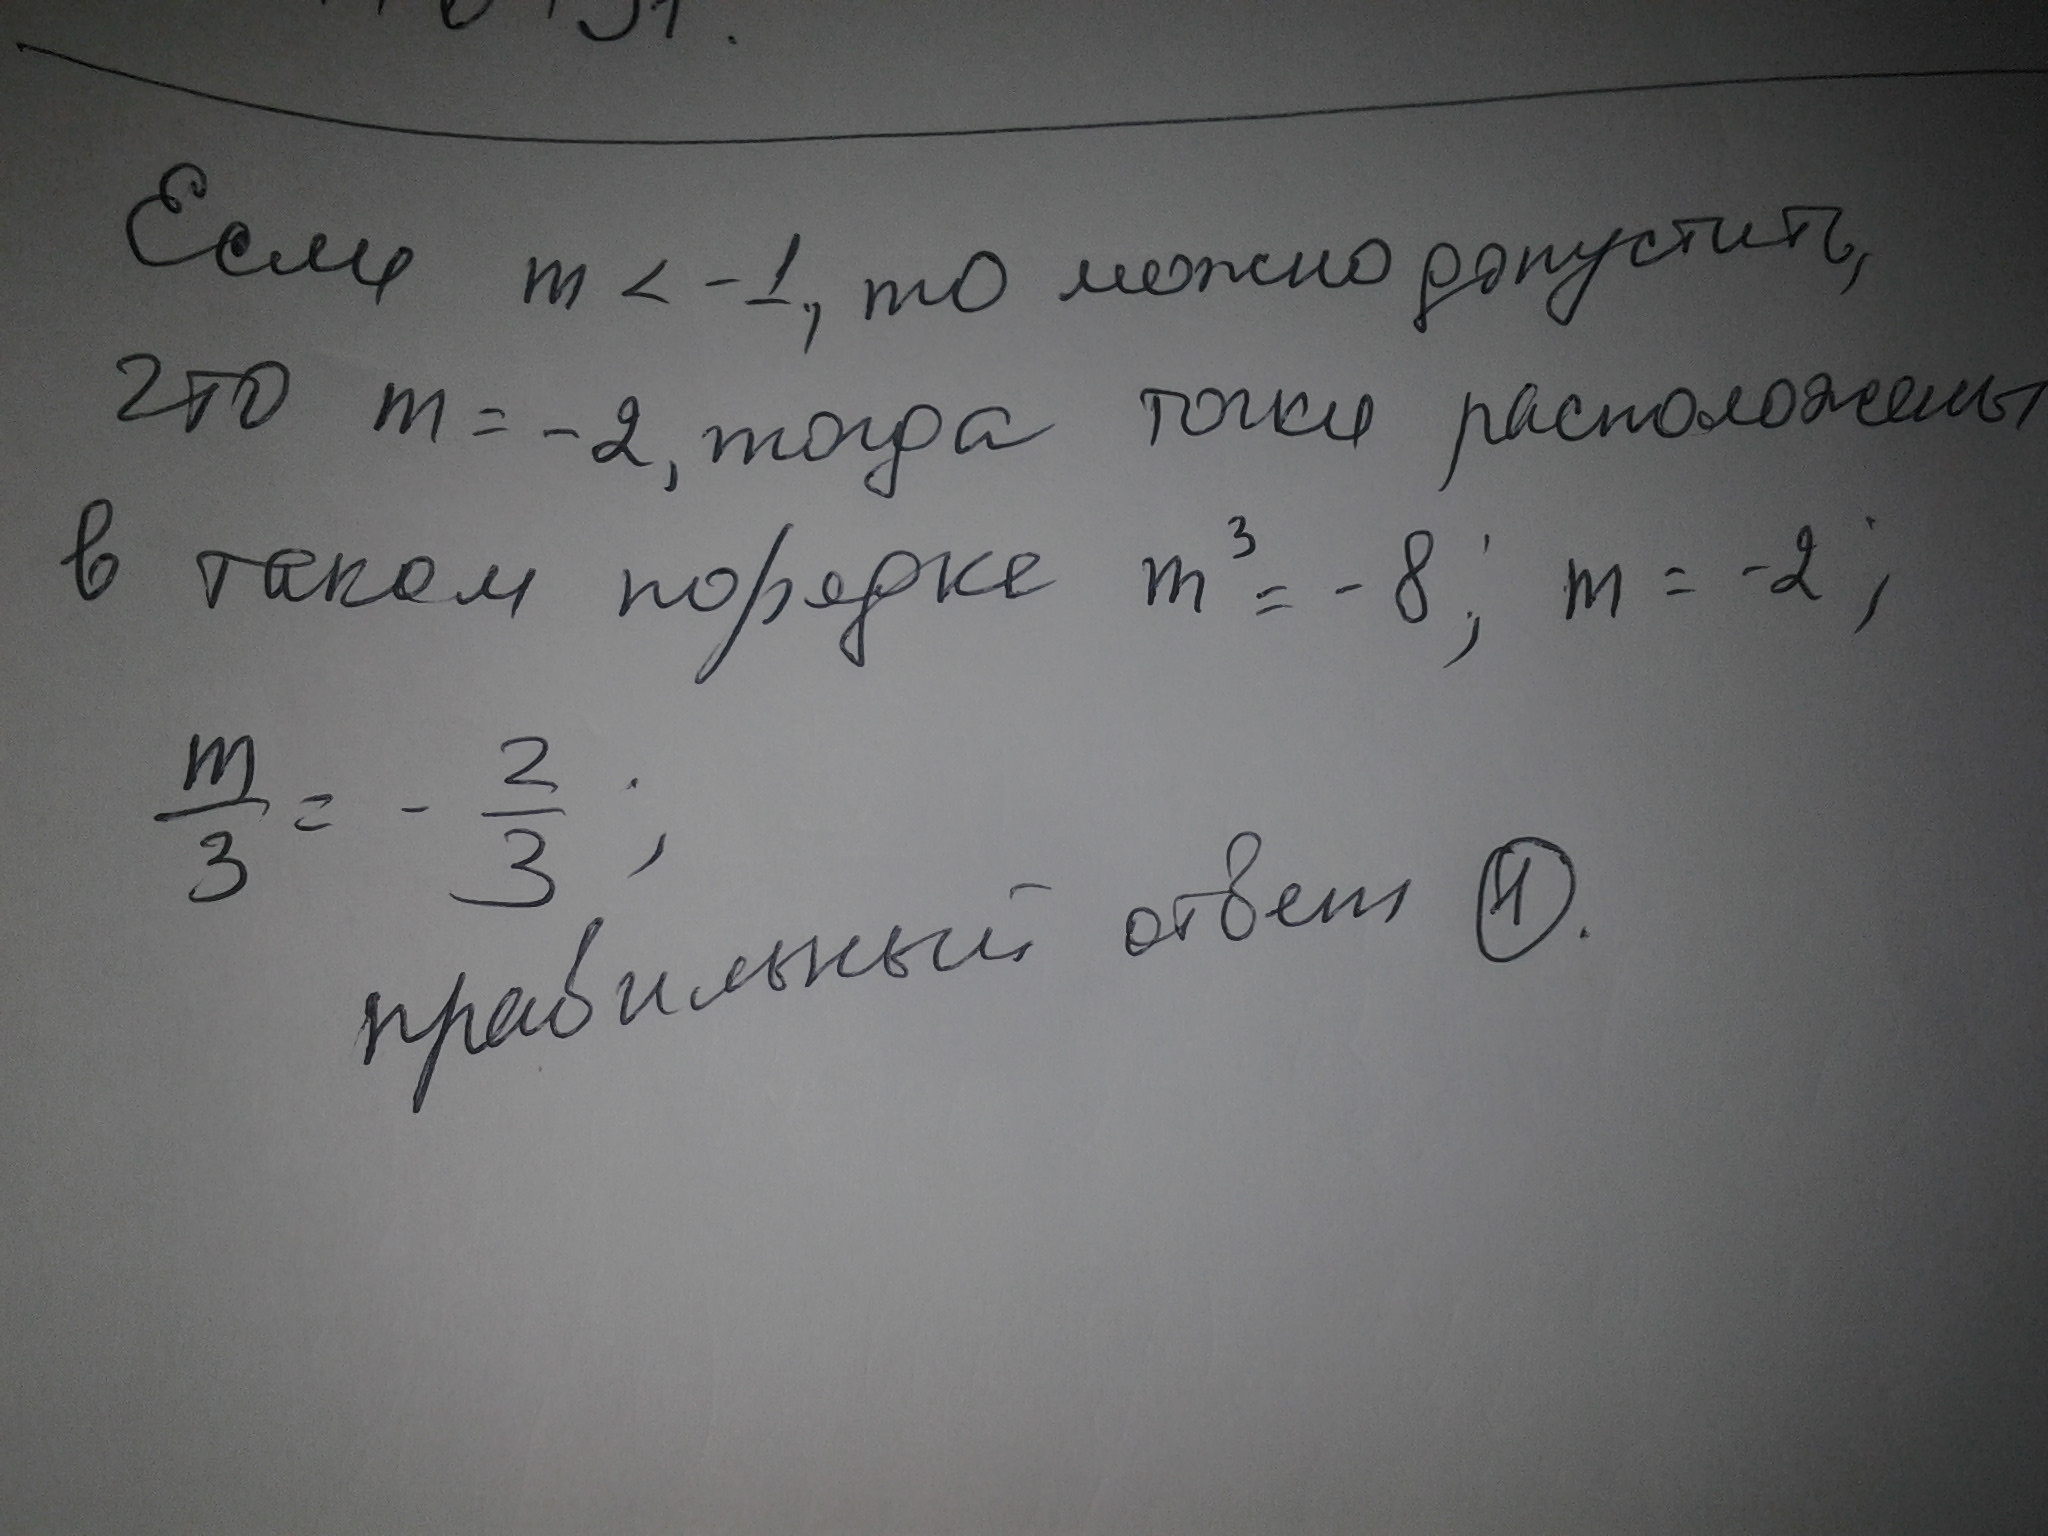 Если m < -1, то можно допустить,
что m = -2, тогда точки расположены
в таком порядке m³ = -8; m = -2;
m/3 = - 2/3;
правильный ответ 4.